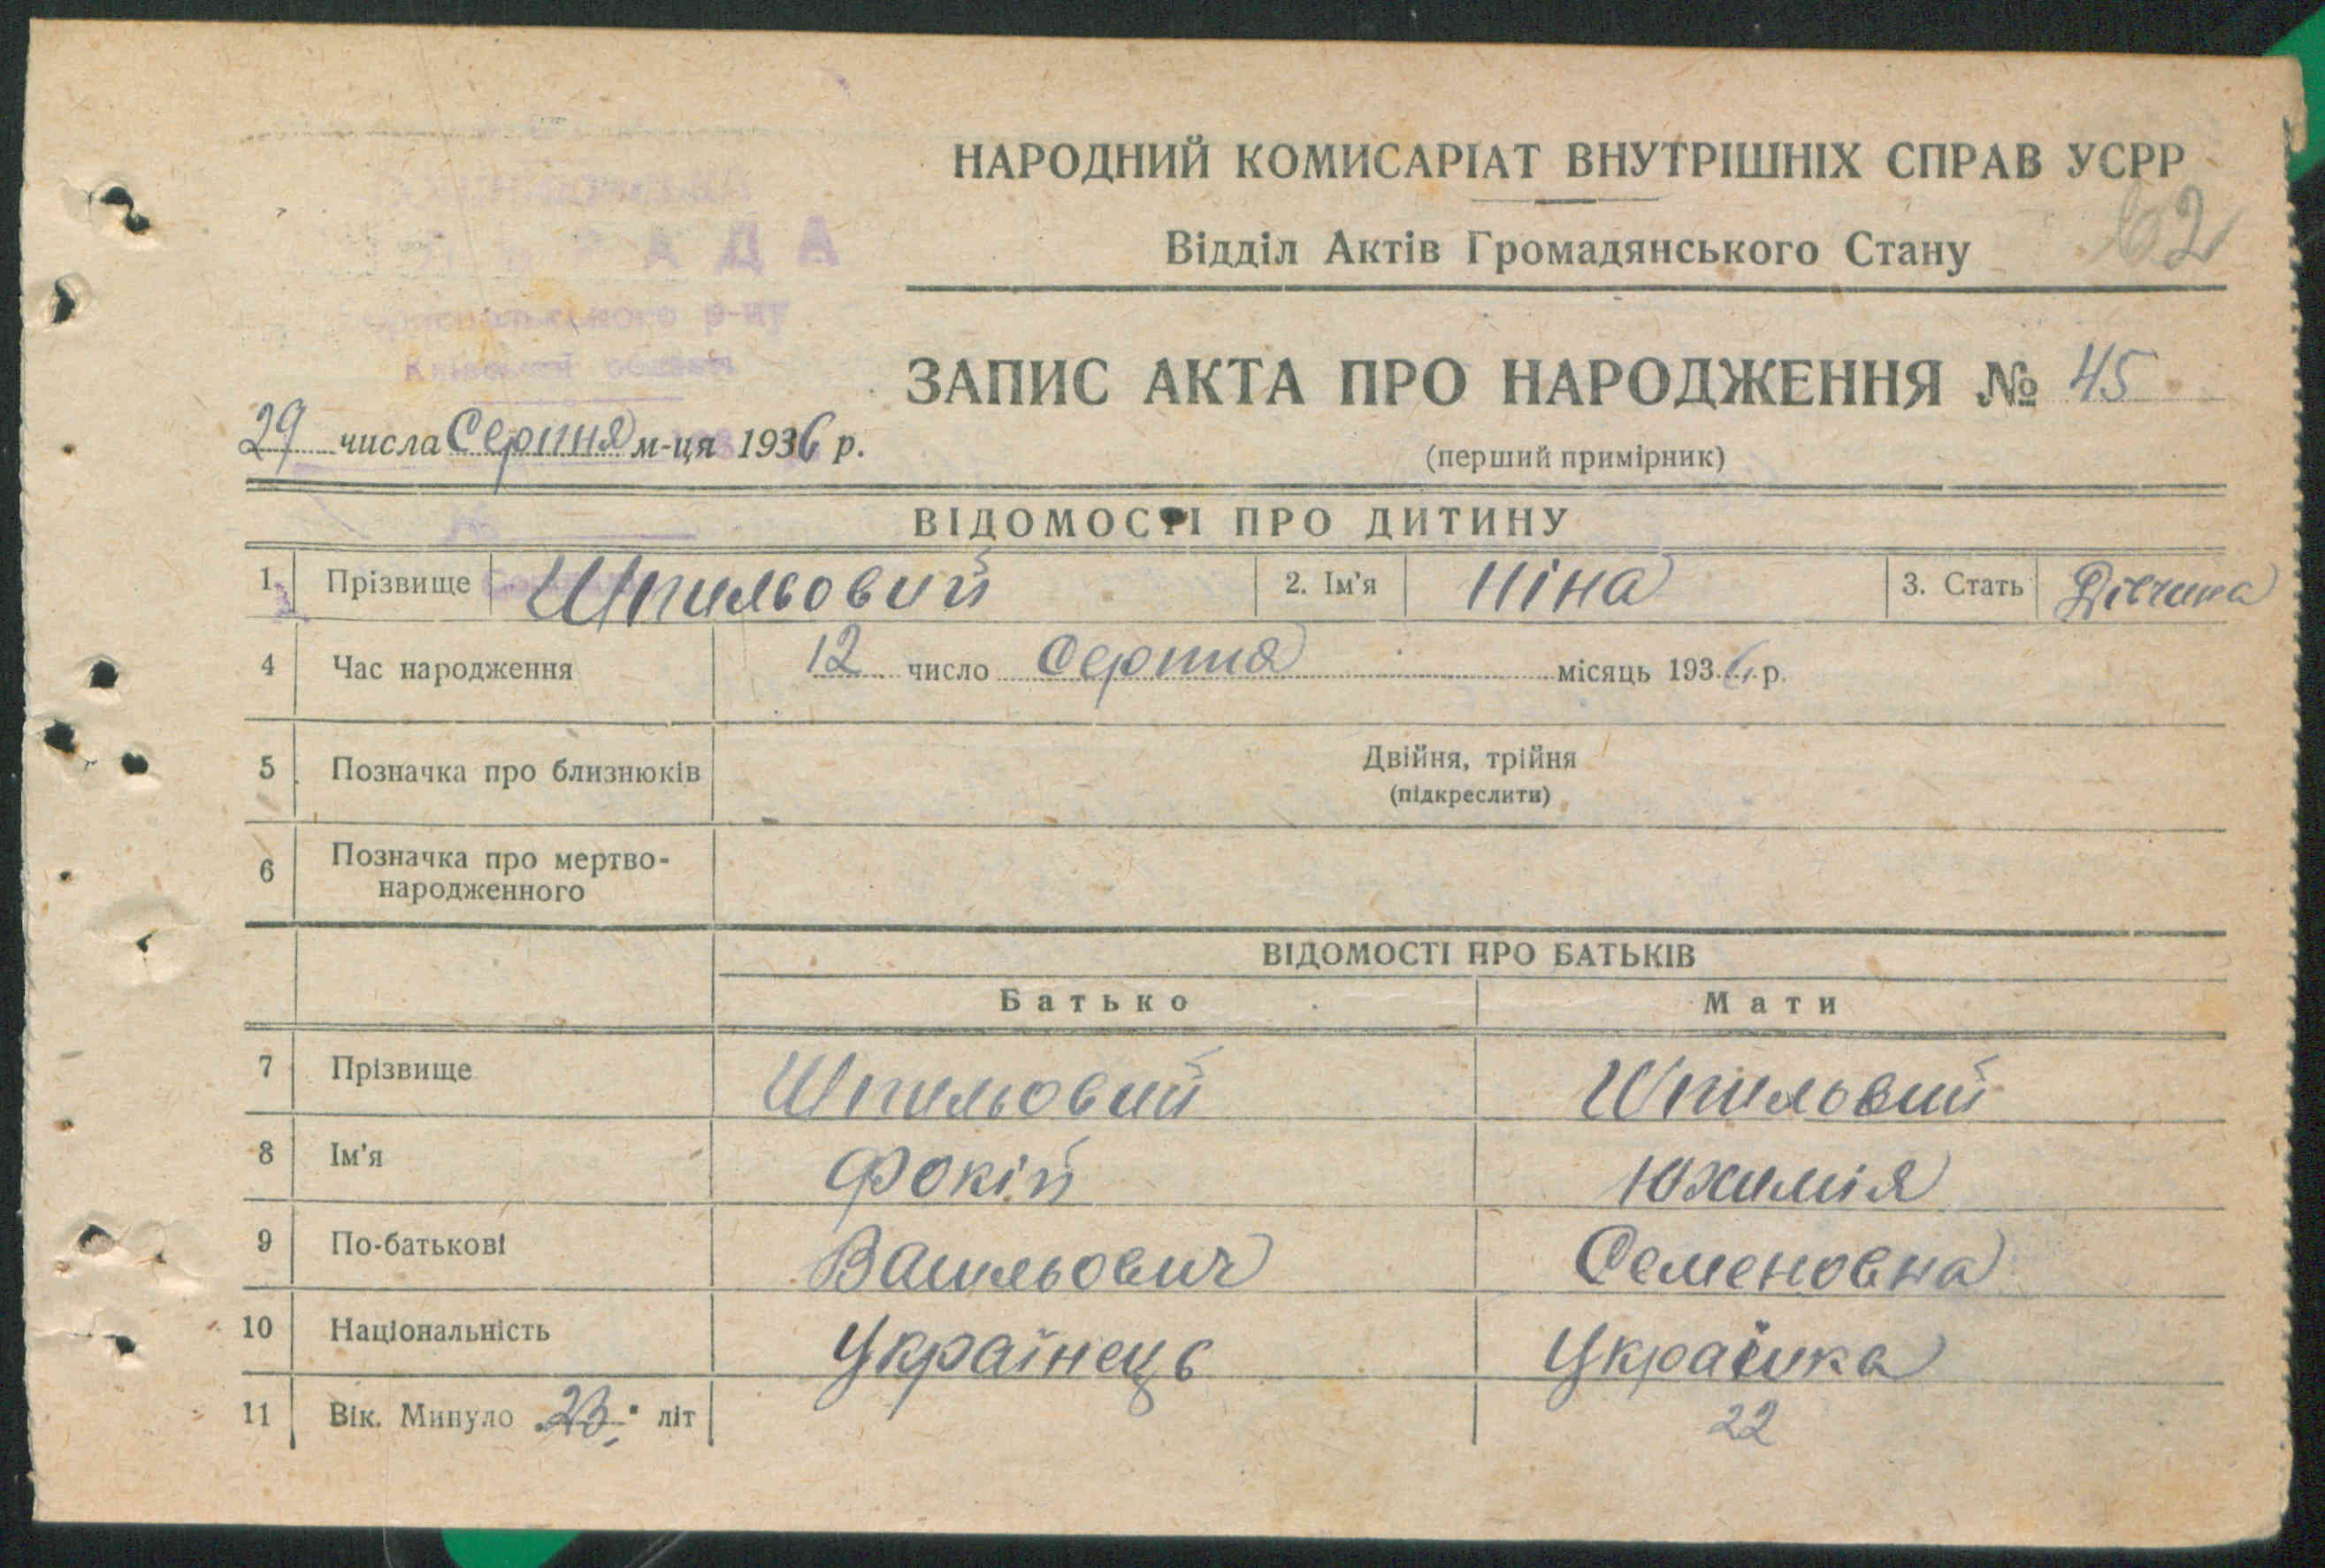 НАРОДНИЙ КОМИСАРІАТ ВНУТРІШНІХ СПРАВ УСРР
62
Відділ Актів Громадянського Стану
РАДА
р-ну
Київської області
ЗАПИС АКТА ПРО НАРОДЖЕННЯ № 45
29 числа Серпня м-ця 1936 р.
(перший примірник)
ВІДОМОСТІ ПРО ДИТИНУ
1. Прізвище Шпильовий 2. Ім'я Ніна 3. Стать Дівчина
4 Час народження 12 число Серпня місяць 1936 р.
5 Позначка про близнюків Двійня, трійня
(підкреслити)
6 Позначка про мертво-
народженного
ВІДОМОСТІ ПРО БАТЬКІВ
Батько Мати
7 Прізвище Шпильовий Шпильовий
8 Ім'я Фокій Юхимія
9 По-батькові Васильович Семеновна
10 Національність Українець Українка
11 Вік. Минуло 23 літ 22